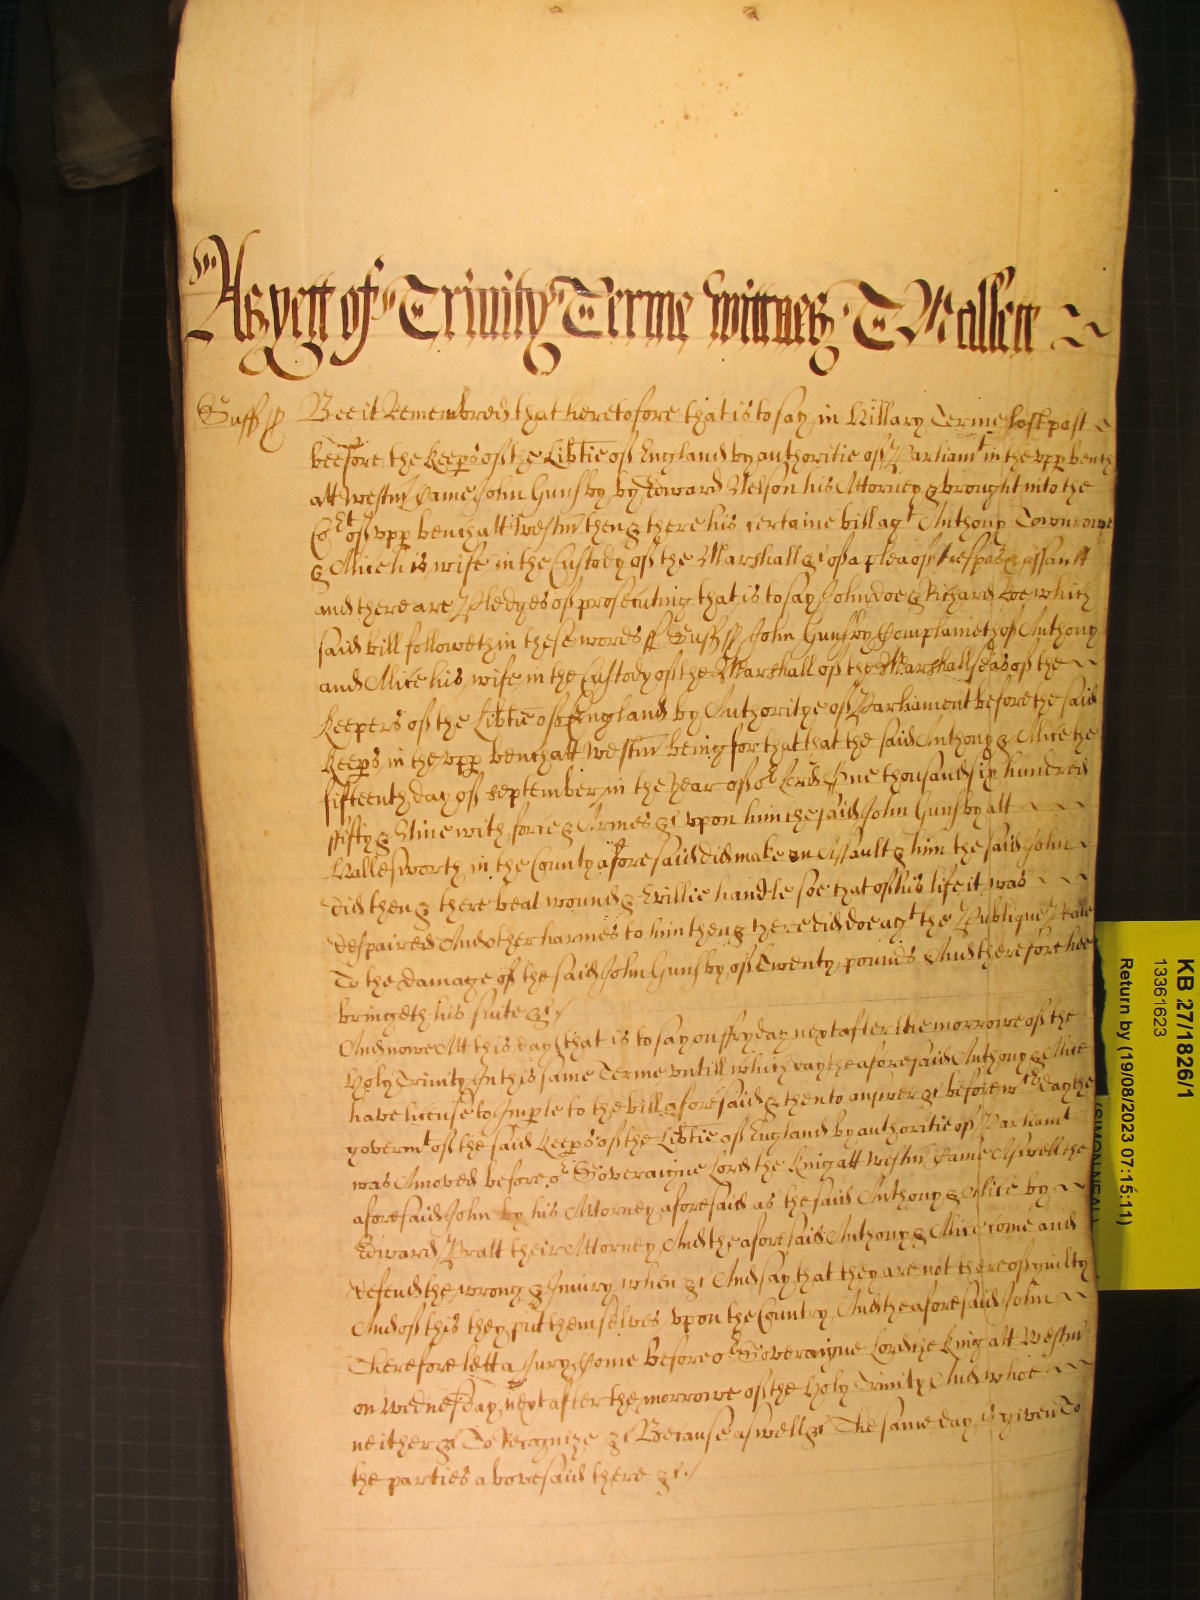 As yett of Trinity Terme wittnes T Mallett
Suff ss Bee it Remembred that heretofore that is to say in Hillary Terme last past
beefore the Keeps of the Libtie of England by authoritie of Parliamt in the vpp bench
att Westm Came John Gunsby by Edward Nelson his Attorney & brought into the
Cort of vpp bench att Westm then & there his certaine bill agt Anthony
& Alice his wife in the Custody of the Marshall &c of a plea of trespas & assault
and there are Pledges of prosecuting that is to say John doe & Richard Roe which
said bill followeth in these words ss Suff ss John Gunsby Complaineth of Anthony
and Alice his wife in the Custody of the Marshall of the Marshallseas of the
Keepers of the Libtie of England by Authoritye of Parliament before the said
Keeps in the vpp bench att Westm being for that that the said Anthony & Alice the
fifteenth day of September in the year of or Lord One thousand six hundred
ffifty & Nine with force & Armes &c vpon him the said John Gunsby att
Wallesworth in the County aforesaid did make an Assault & him the said John
did then & there beat wound & Evillie handle soe that of his life it was
despaired And other harmes to him then & there did doe agt the Publique Peace
To the damage of the said John Gunsby of Twenty pounds And therefore hee
bringeth his suite &c
And nowe Att this day that is to say on ffryday next after the morrowe of the
Holy Trinity In this same Terme vntill which day the aforesaid Anthony & Alice
have license to Imple to the bill aforesaid & then to answer &c before wch day the
govermt of the said Keeps of the Libtie of England by authoritie of Parliamt
was Amoved before or Soveraigne Lord the King att Westm Came Aswell the
aforesaid John by his Attorney aforesaid as the said Anthony & Alice by
Edward Pratt their Attorney And the aforesaid Anthony & Alice come and
defend the wrong & Iniury when &c And say that they are not thereof guilty
And of this they put themselves vpon the Country And the aforesaid John
Therefore lett a Iury Come before or Soveraigne Lord the King att Westm
on Wednesday next after the morrowe of the Holy Trinity And whoe
neither &c To Recognize &c Because aswell &c The same day is given To
the parties abovesaid there &c
KB 27/1826/1
13361623
Return by (19/08/2023 07:15:11)
(SIMON NEAL)